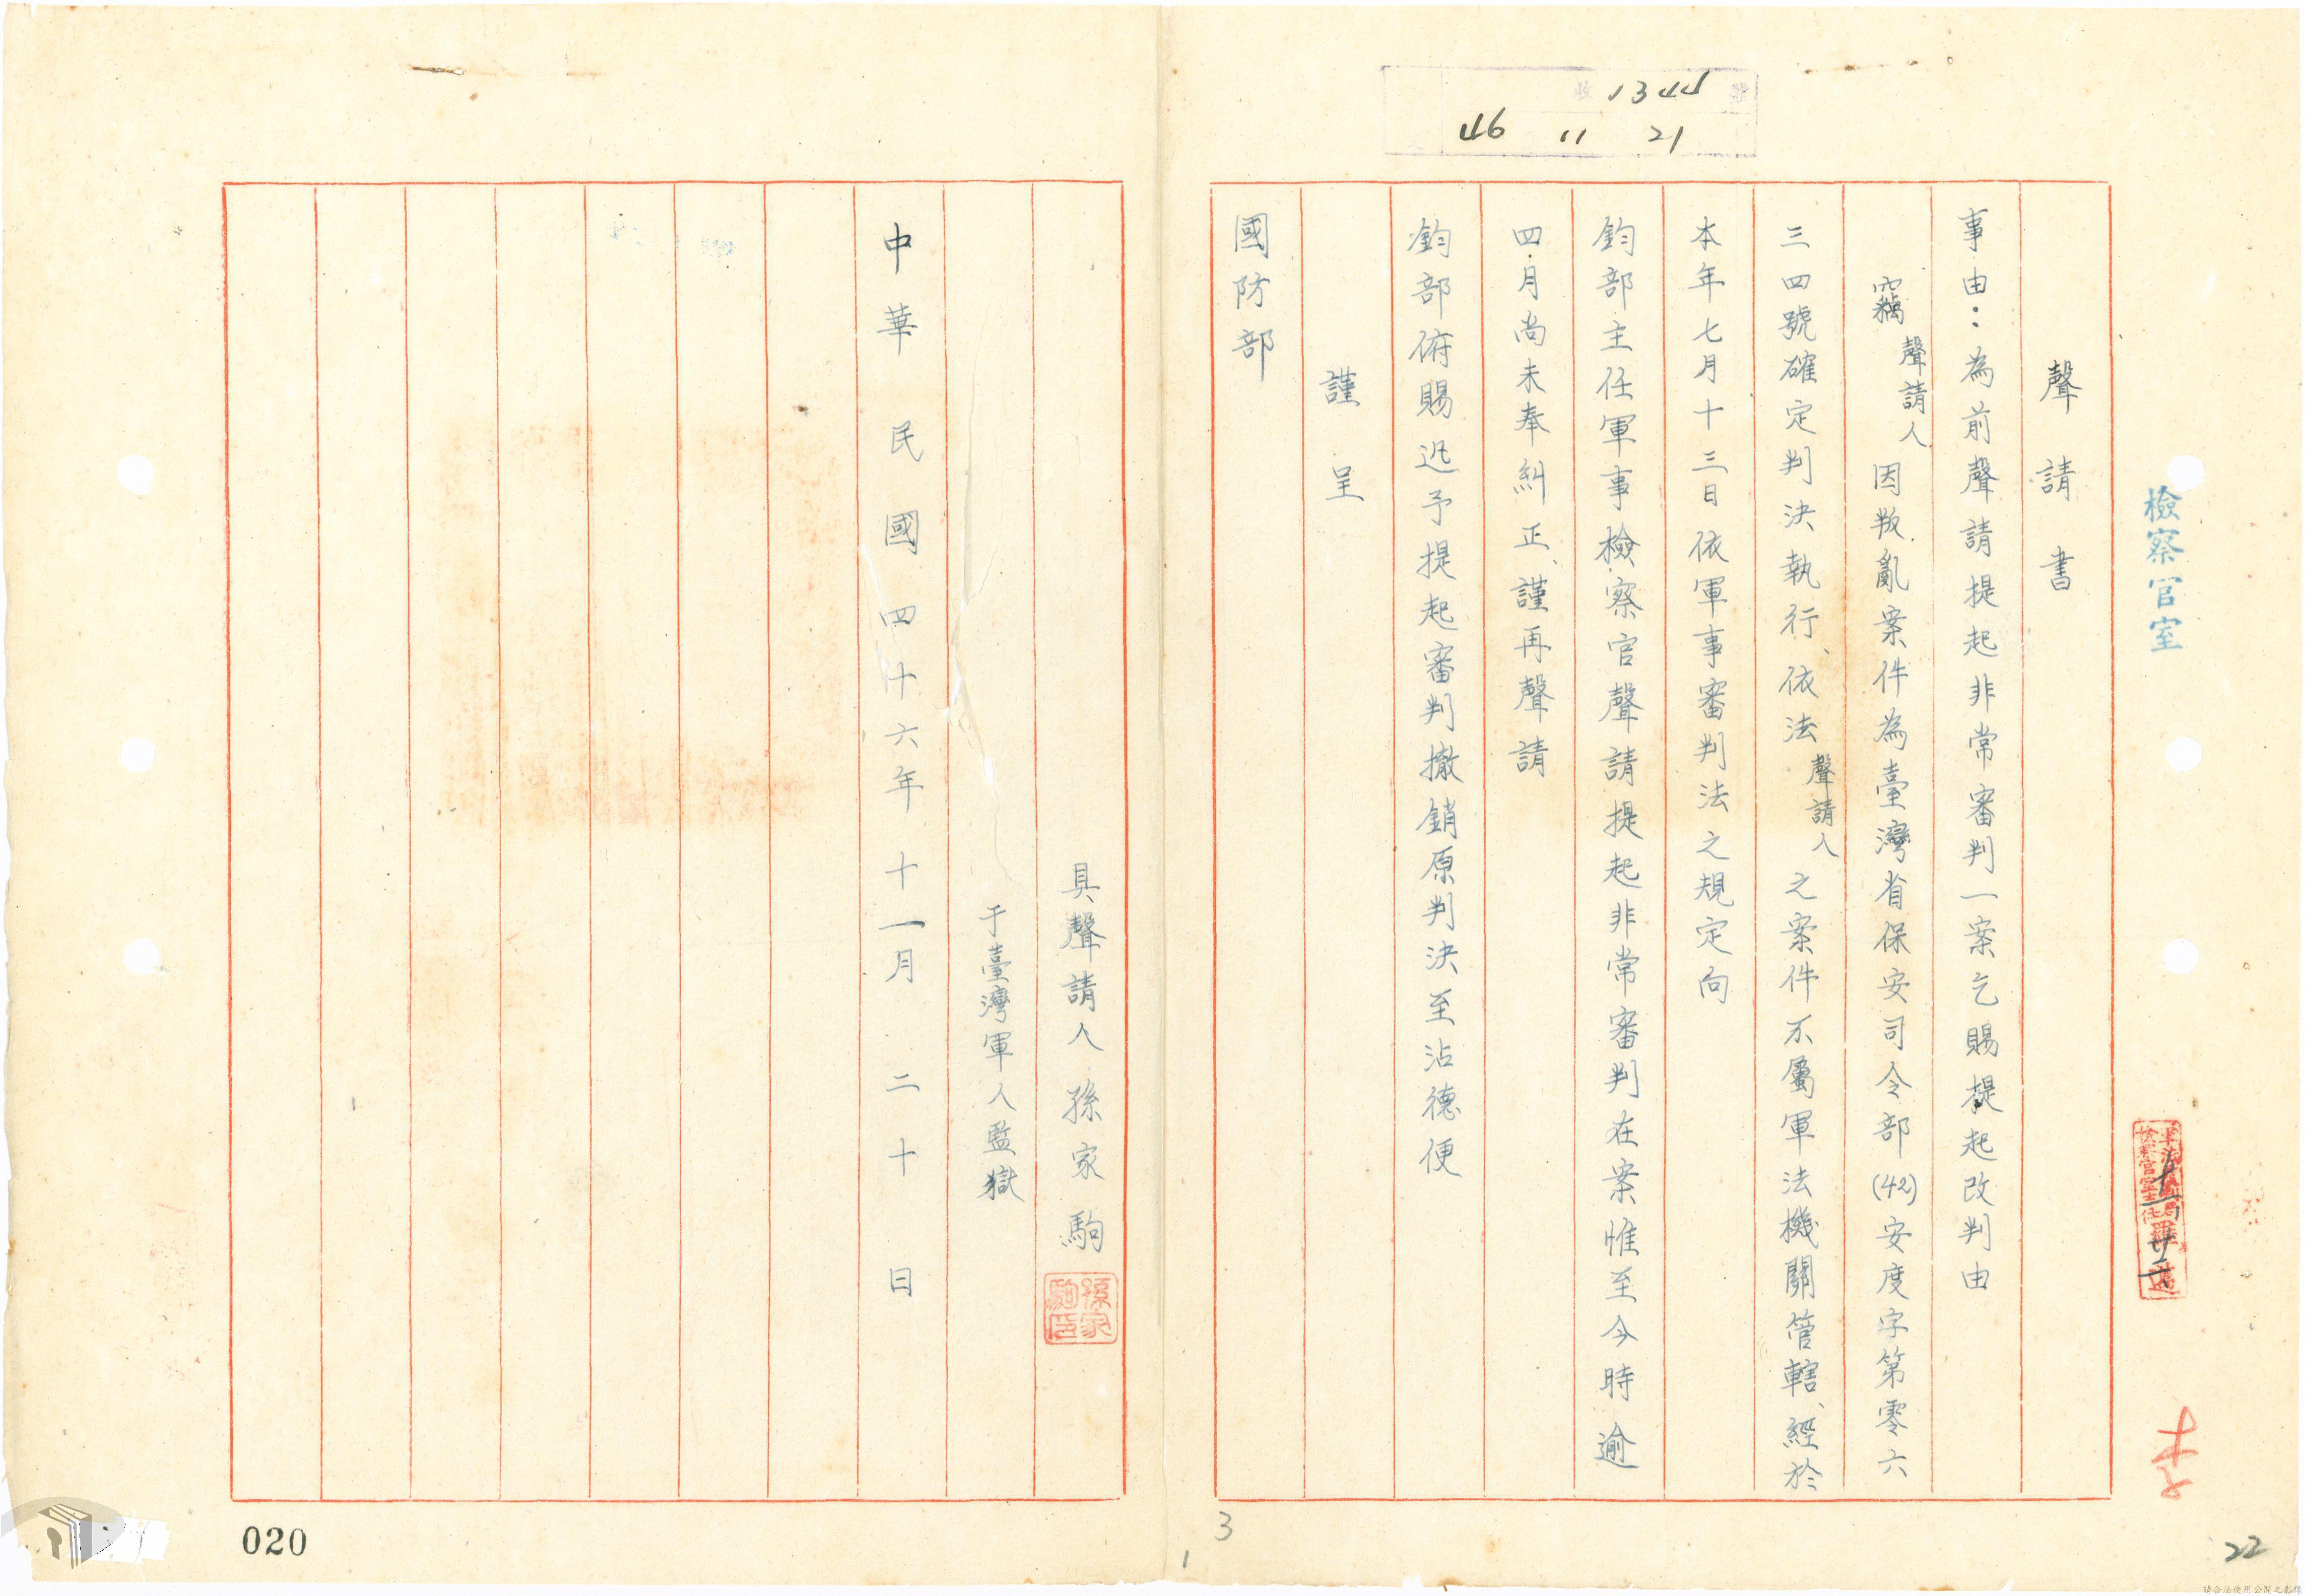 收 1344
46 11 21
檢察官室
李
聲請書
事由：為前聲請提起非常審判一案乞賜提起改判由
竊聲請人因叛亂案件為臺灣省保安司令部(42)安度字第零六
三四號確定判決執行、依法聲請人之案件不屬軍法機關管轄、經於
本年七月十三日依軍事審判法之規定向
鈞部主任軍事檢察官聲請提起非常審判在案惟至今時逾
四月尚未奉糾正、謹再聲請
鈞部俯賜迅予提起審判撤銷原判決至沾德便
謹呈
國防部
具聲請人孫家駒
孫家駒印
于臺灣軍人監獄
中華民國四十六年十一月二十日
020
3
1
22
請合法使用公開之影像